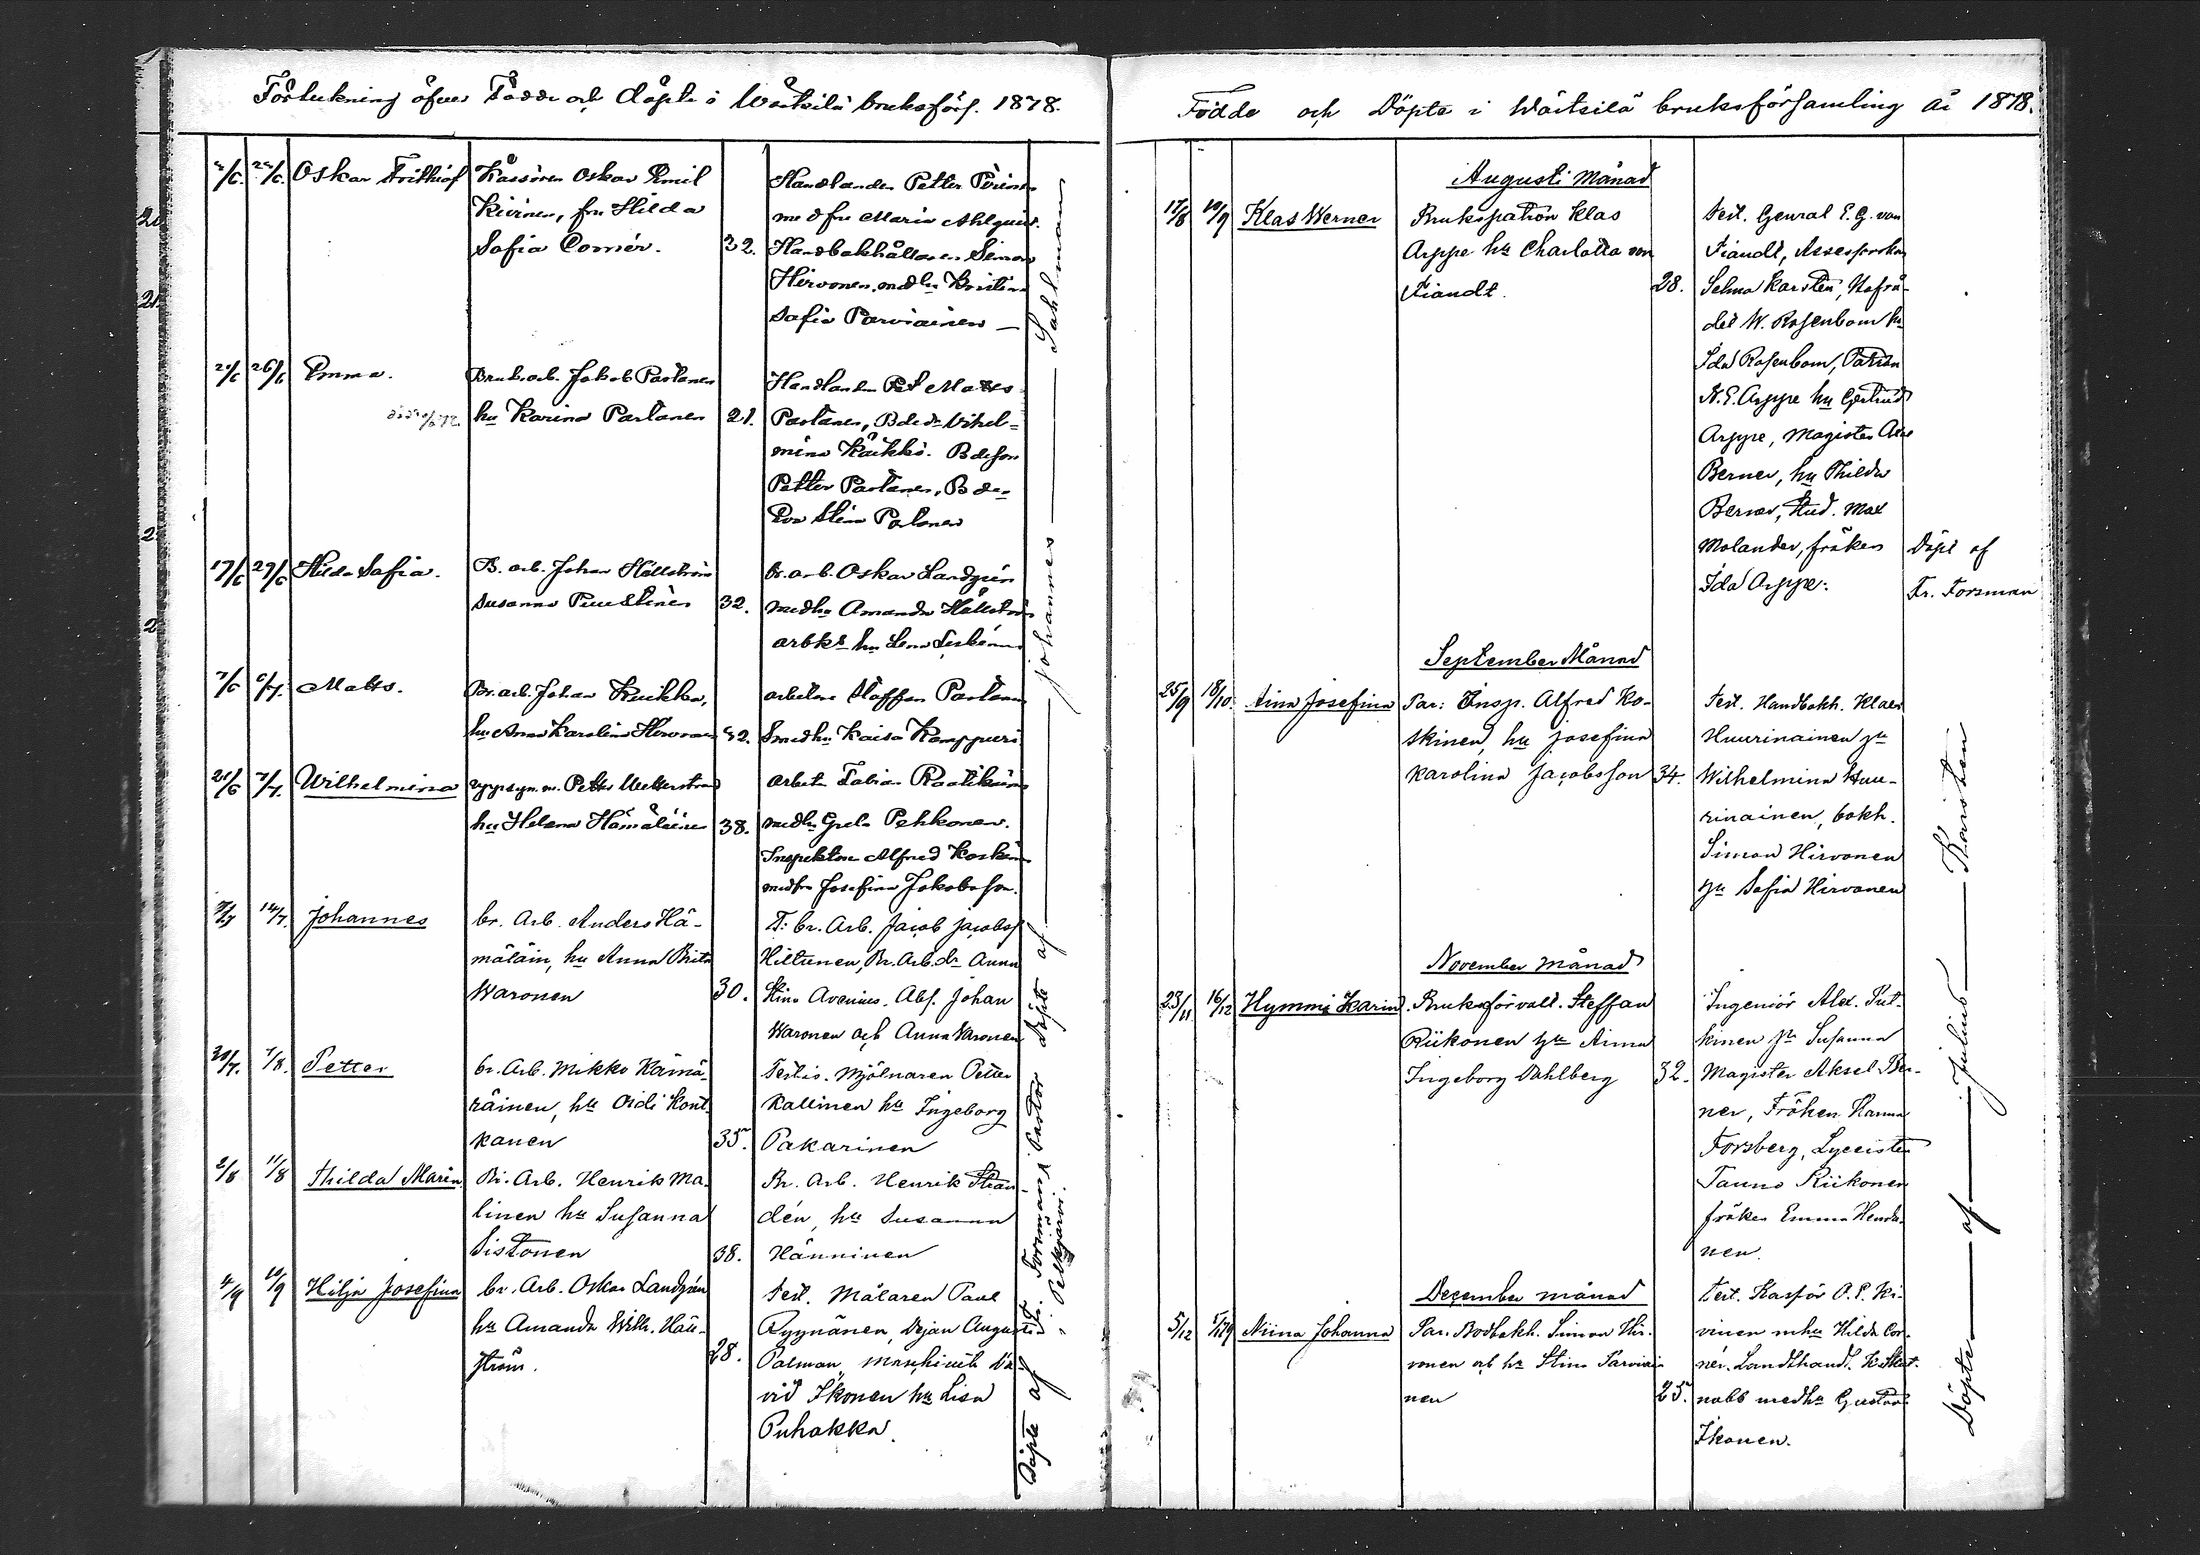 Förteckning öfver Födde och döpte i Wärtsilä bruksförs. 1878.
2/6. 22/6. Oskar Frithiof Kassören Oskar Emil
Kivinen, fru Hilda
Sofia Cornér. 32.
Handlanden Petter
med fru Maria Ahlquist.
Handbokhållaren Simon
Hirvonen, med hu Kristina
Sofia Parviainen —
26/6 Emma. Bruksarb. Jakob Partanen
hu Karina Partanen 21.
Handlanden Matts
Partanen, Bdedr Vilhel-
mina Käikkö. Bdeson
Petter Partanen, Bde-
Eva Stina Partanen
17/6 29/6 Hilda Sofia. B. arb. Johan Hällström
Susanna Puustinen 32.
Br. arb. Oskar Landgrén
med hu Amanda Hällström
arbks hu Lena
7/6 6/7. Matts. Br. arb. Johan Kuikka,
hu Anna Karolina Hirvonen 32.
arbetare Staffan Partanen
Smed hu Kaisa Kamppuri
21/6 7/7. Wilhelmina Petter Wetterstrand
hu Helena Hämäläinen 38.
arbetn Fabian Raatikainen
med hu Greta Pehkonen.
Inspektor Alfred Koskinen
med fru Josefina Jakobsson.
14/7. Johannes br. Arb. Anders Hä-
mäläin, hu Anna Brita
Waronen 30.
T: br. Arb. Jacob Jacobsf
Hiltunen, Br. Arb. dr Anna
Stina Avenius. Abf. Johan
Waronen och Anna Waronen
30/7. 7/8. Petter br. Arb. Mikko Kämä-
räinen, hu Oidi Kont-
kanen 35.
Testis. Mjölnaren Petter
Kallinen hu Ingeborg
Pakarinen
2/8 11/8 Thilda Maria Br. Arb. Henrik Ma-
linen hu Susanna
Sistonen 38.
Br. Arb. Henrik Stran-
dén, hu Susanna
Hänninen
4/9 10/9 Hilja Josefina br. Arb. Oskar Landgrén
hu Amanda Wilh. Häll-
ström. 28.
Test. Målaren Paul
Ryynänen, Dejan Augusta
Palman, Maskinist Da-
vid Ikonen hu Lisa
Puhakka.
Johannes Sahlman
Döpte af
Döpte af Fr. Forsman, Pastor
i Pelkjärvi.
Födde och Döpte i Wärtsilä bruksförsamling år 1878.
Augusti Månad
17/8 10/9 Klas Werner Brukspatron Klas
Arppe hu Charlotta von
Fiandt. 28.
Test. General E. G. von
Fiandt, Assessorskan
Selma Karsten, Hofrå-
det W. Rosenbom hu
Ida Rosenbom, Patron
N. E. Arppe hu Gertrud
Arppe, Magister Axel
Berner, hu Thilda
Berner, Stud. Max
Molander, fröken
Ida Arppe.
Döpt af
Fr. Forsman
September Månad
25/9 18/10. Aina Josefina Par: Insp. Alfred Ko-
skinen, hu Josefina
Karolina Jacobsson 34.
Test. Handbokh. Klaes
Huurinainen hu
Wilhelmina Huu-
rinainen, bokh.
Simon Hirvonen
hu Sofia Hirvonen
November månad
23/11 16/12 Hymmi Karin. Bruksförvalt. Steffan
Riikonen hu Aina
Ingeborg Dahlberg 32.
Ingeniör Alex. Put-
kinen hu Susanna
Magister Aksel Ber-
ner, Fröken Hanna
Forsberg, Lyceisten
Tauno Riikonen
fröken Emma
nen.
December månad
5/12 1/1 79 Niina Johanna Par. Bodbokh. Simon Hir-
vonen och hu Stina Parviai-
nen 25.
Test. Kassör O. E. Ki-
vinen m hu Hilda Cor-
nér. Landthandl.
med hu Gustava
Ikonen.
Döpte — af — Julius — Karsten